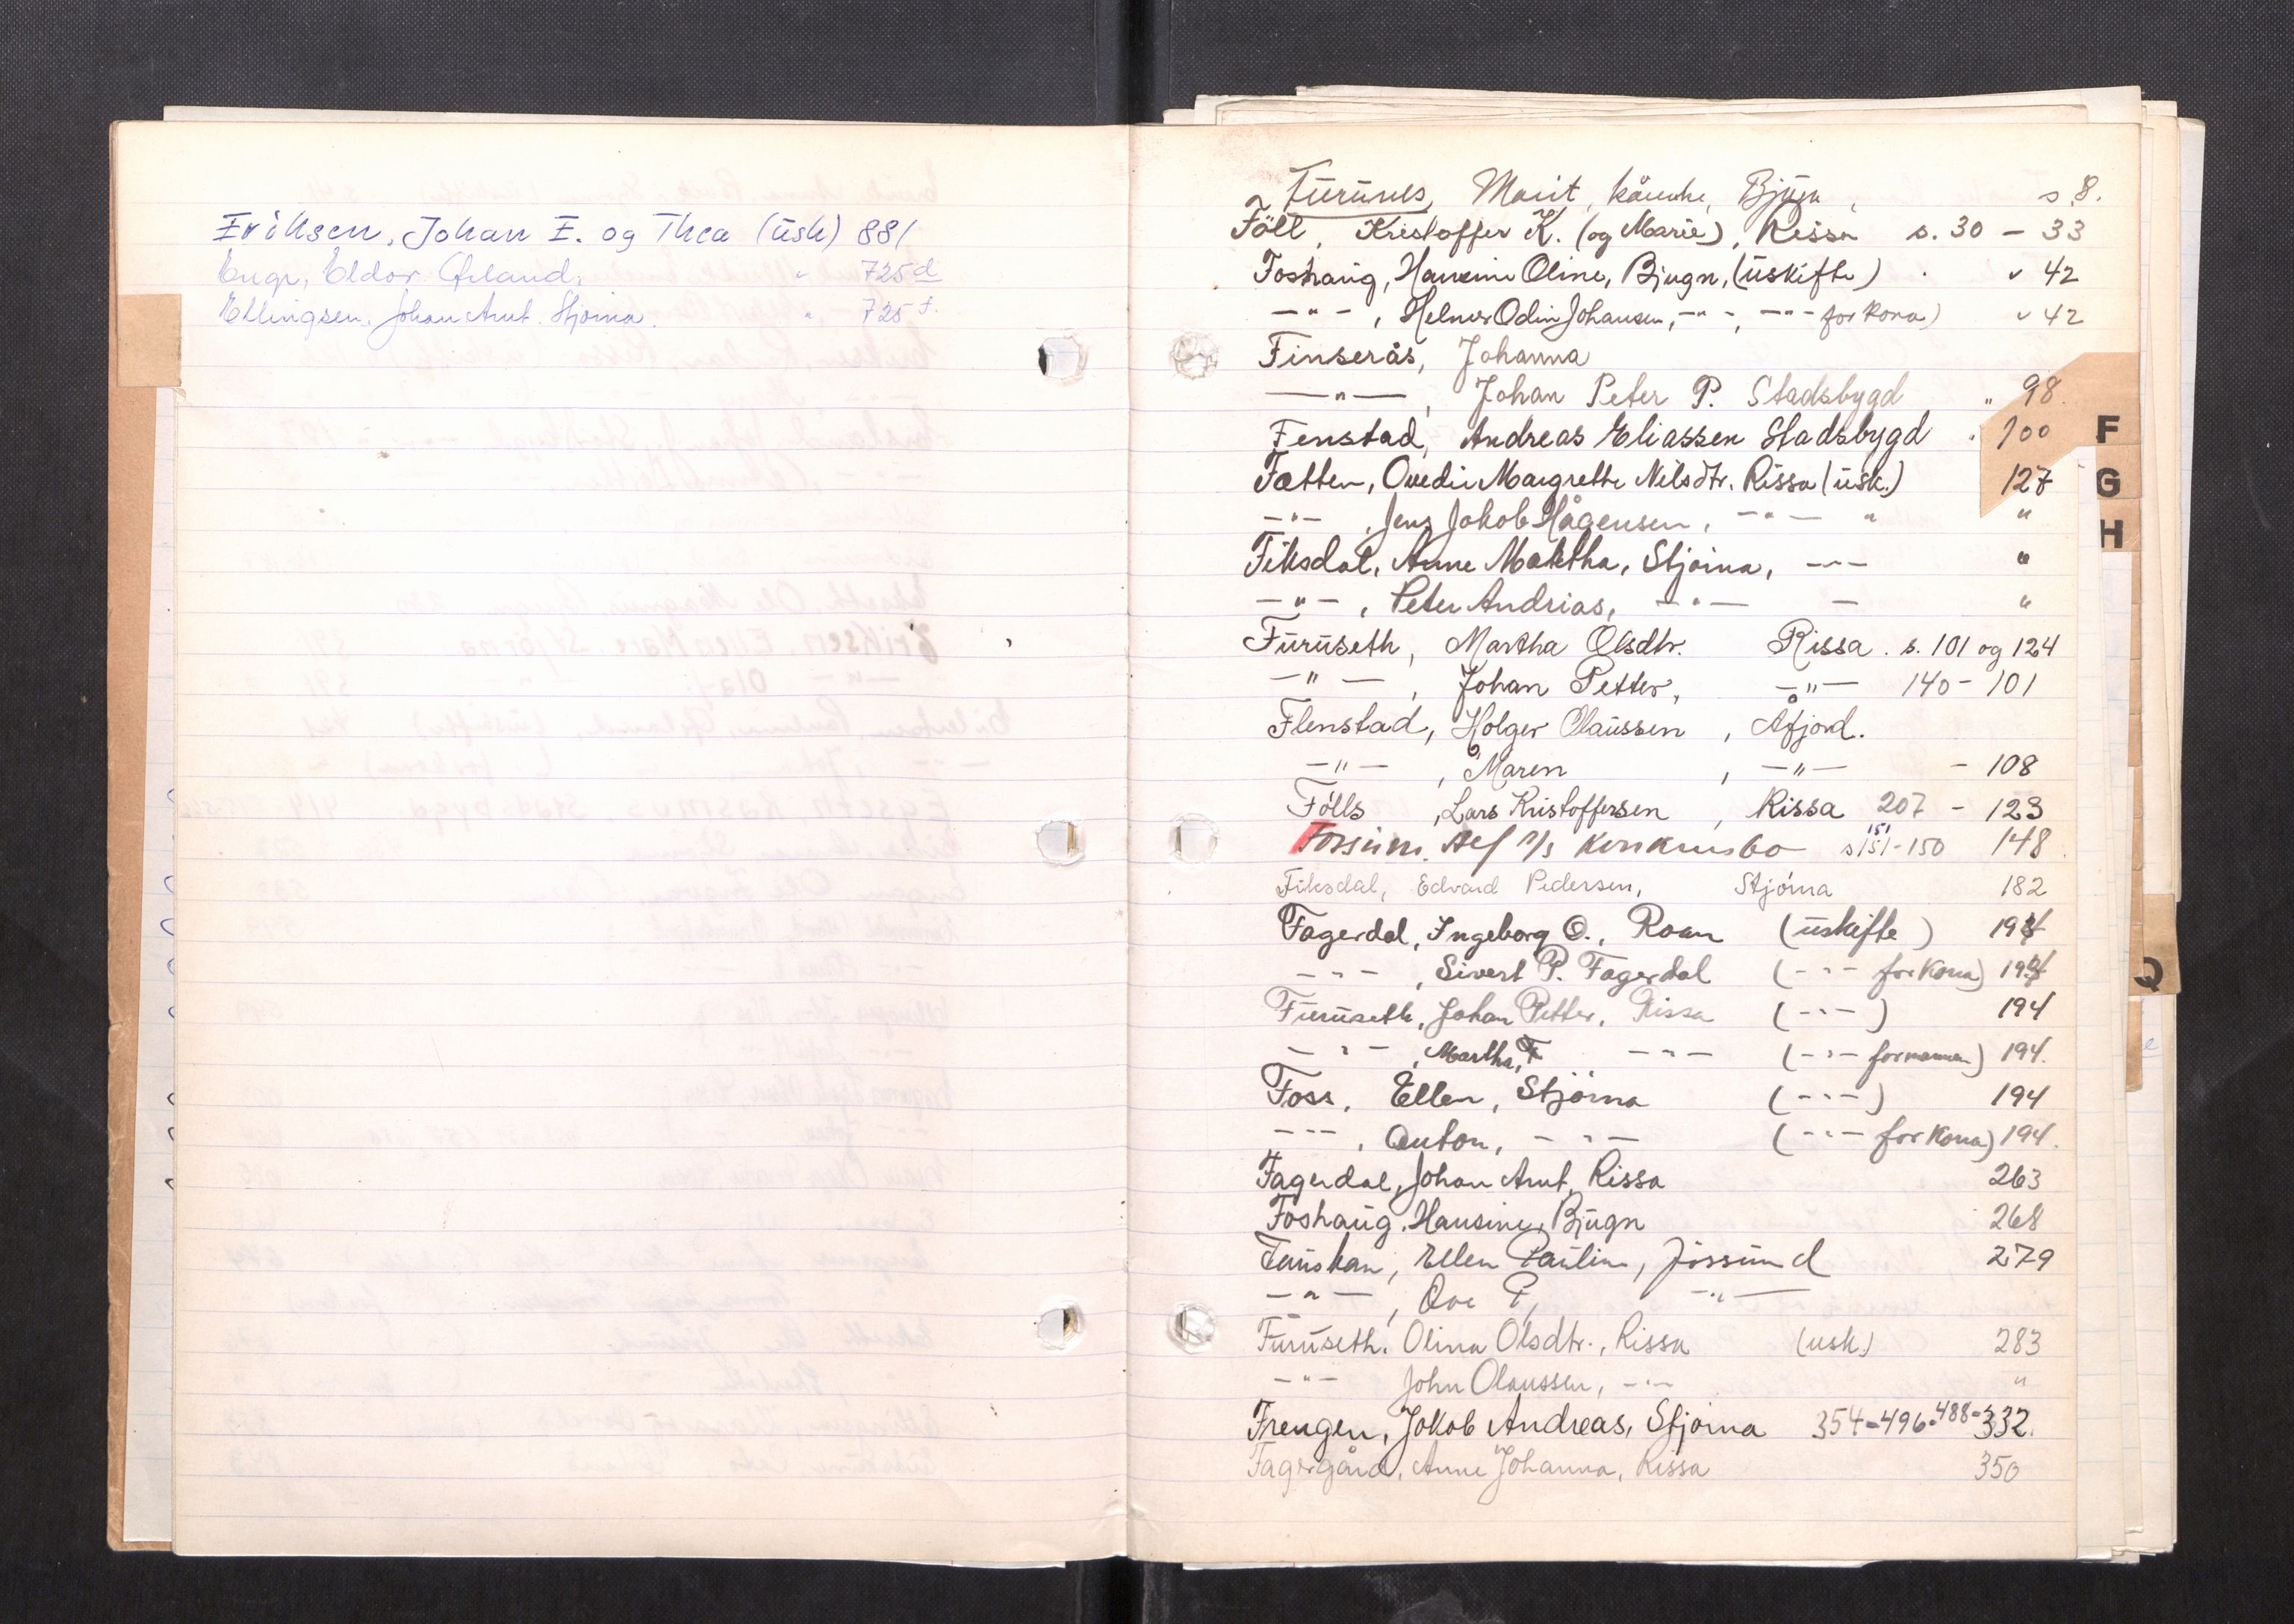 Eriksen, Johan E. og Thea (üsk) 881
Engr, Eldor Ørland, " 725 d
Ellingsen, Johan Arnt. Stjørna. " 725 f.
Furunes, Marit, kårenke, Bjugn, s 8.
Föll, Kristoffer K. (og Marie), Rissa s. 30 - 33
Foshaug, Hansine Oline, Bjugn, (üskifte) . " 42
-"-, Helmer Odin Johansen, -"-, -"- for kona) " 42
Finserås, Johanna
-"-, Johan Peter P. Stadsbygd " 98.
Fenstad, Andreas Eliassen Stadsbygd . 100
Fætten, Ovedie Margrethe Nilsdtr. Rissa (üsk.) 127
-"-, Jens Jakob Hågensen, -"- " "
Fiksdal, Anne Martha, Stjørna, -"- "
-"-, Peter Andrias, -"- - "
Furuseth, Martha Olsdtr. Rissa. s. 101 og 124
-"-, Johan Petter, -"- 140 - 101
Flenstad, Holger Olaussen, Åfjord.
-"-, Maren, -"- - 108
Fölls, Lars Kristoffersen, Rissa 207 - 123
Fossum. Alf A/S Konkursbo s 151 151-150 148
Fiksdal, Edvard Pedersen, Stjórna 182
Fagerdal, Ingeborg O., Roan (üskifte) 194
-"-, Sivert P. Fagerdal (-"- for Kona) 194
Furuseth, Johan Petter, Rissa (-"-) 194
-"-, Martha, F -"- (-"- for mannen) 194.
Foss, Ellen, Stjórna (-"-) 194
-"-, Anton, -"- (-"- for Kona) 194.
Fagerdal, Johan Arnt, Rissa 263
Foshaug, Hansine, Bjugn 268
Fauskan, Ellen Pauline, Jössund 279
-"-, Ove P, -"-
Furuseth, Olina Olsdtr., Rissa (usk.) 283
-"- John Olaussen, -"- "
Frengen, Jakob Andreas, Stjørna 354-496-488-332.
Fagergård, Anne Johanna, Rissa 350
F
G
H
Q